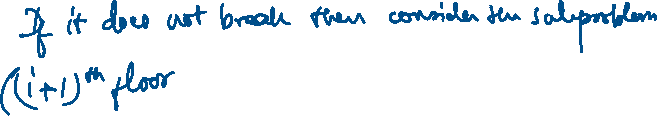 If it does not break then consider the subproblem
((i+1)th floor